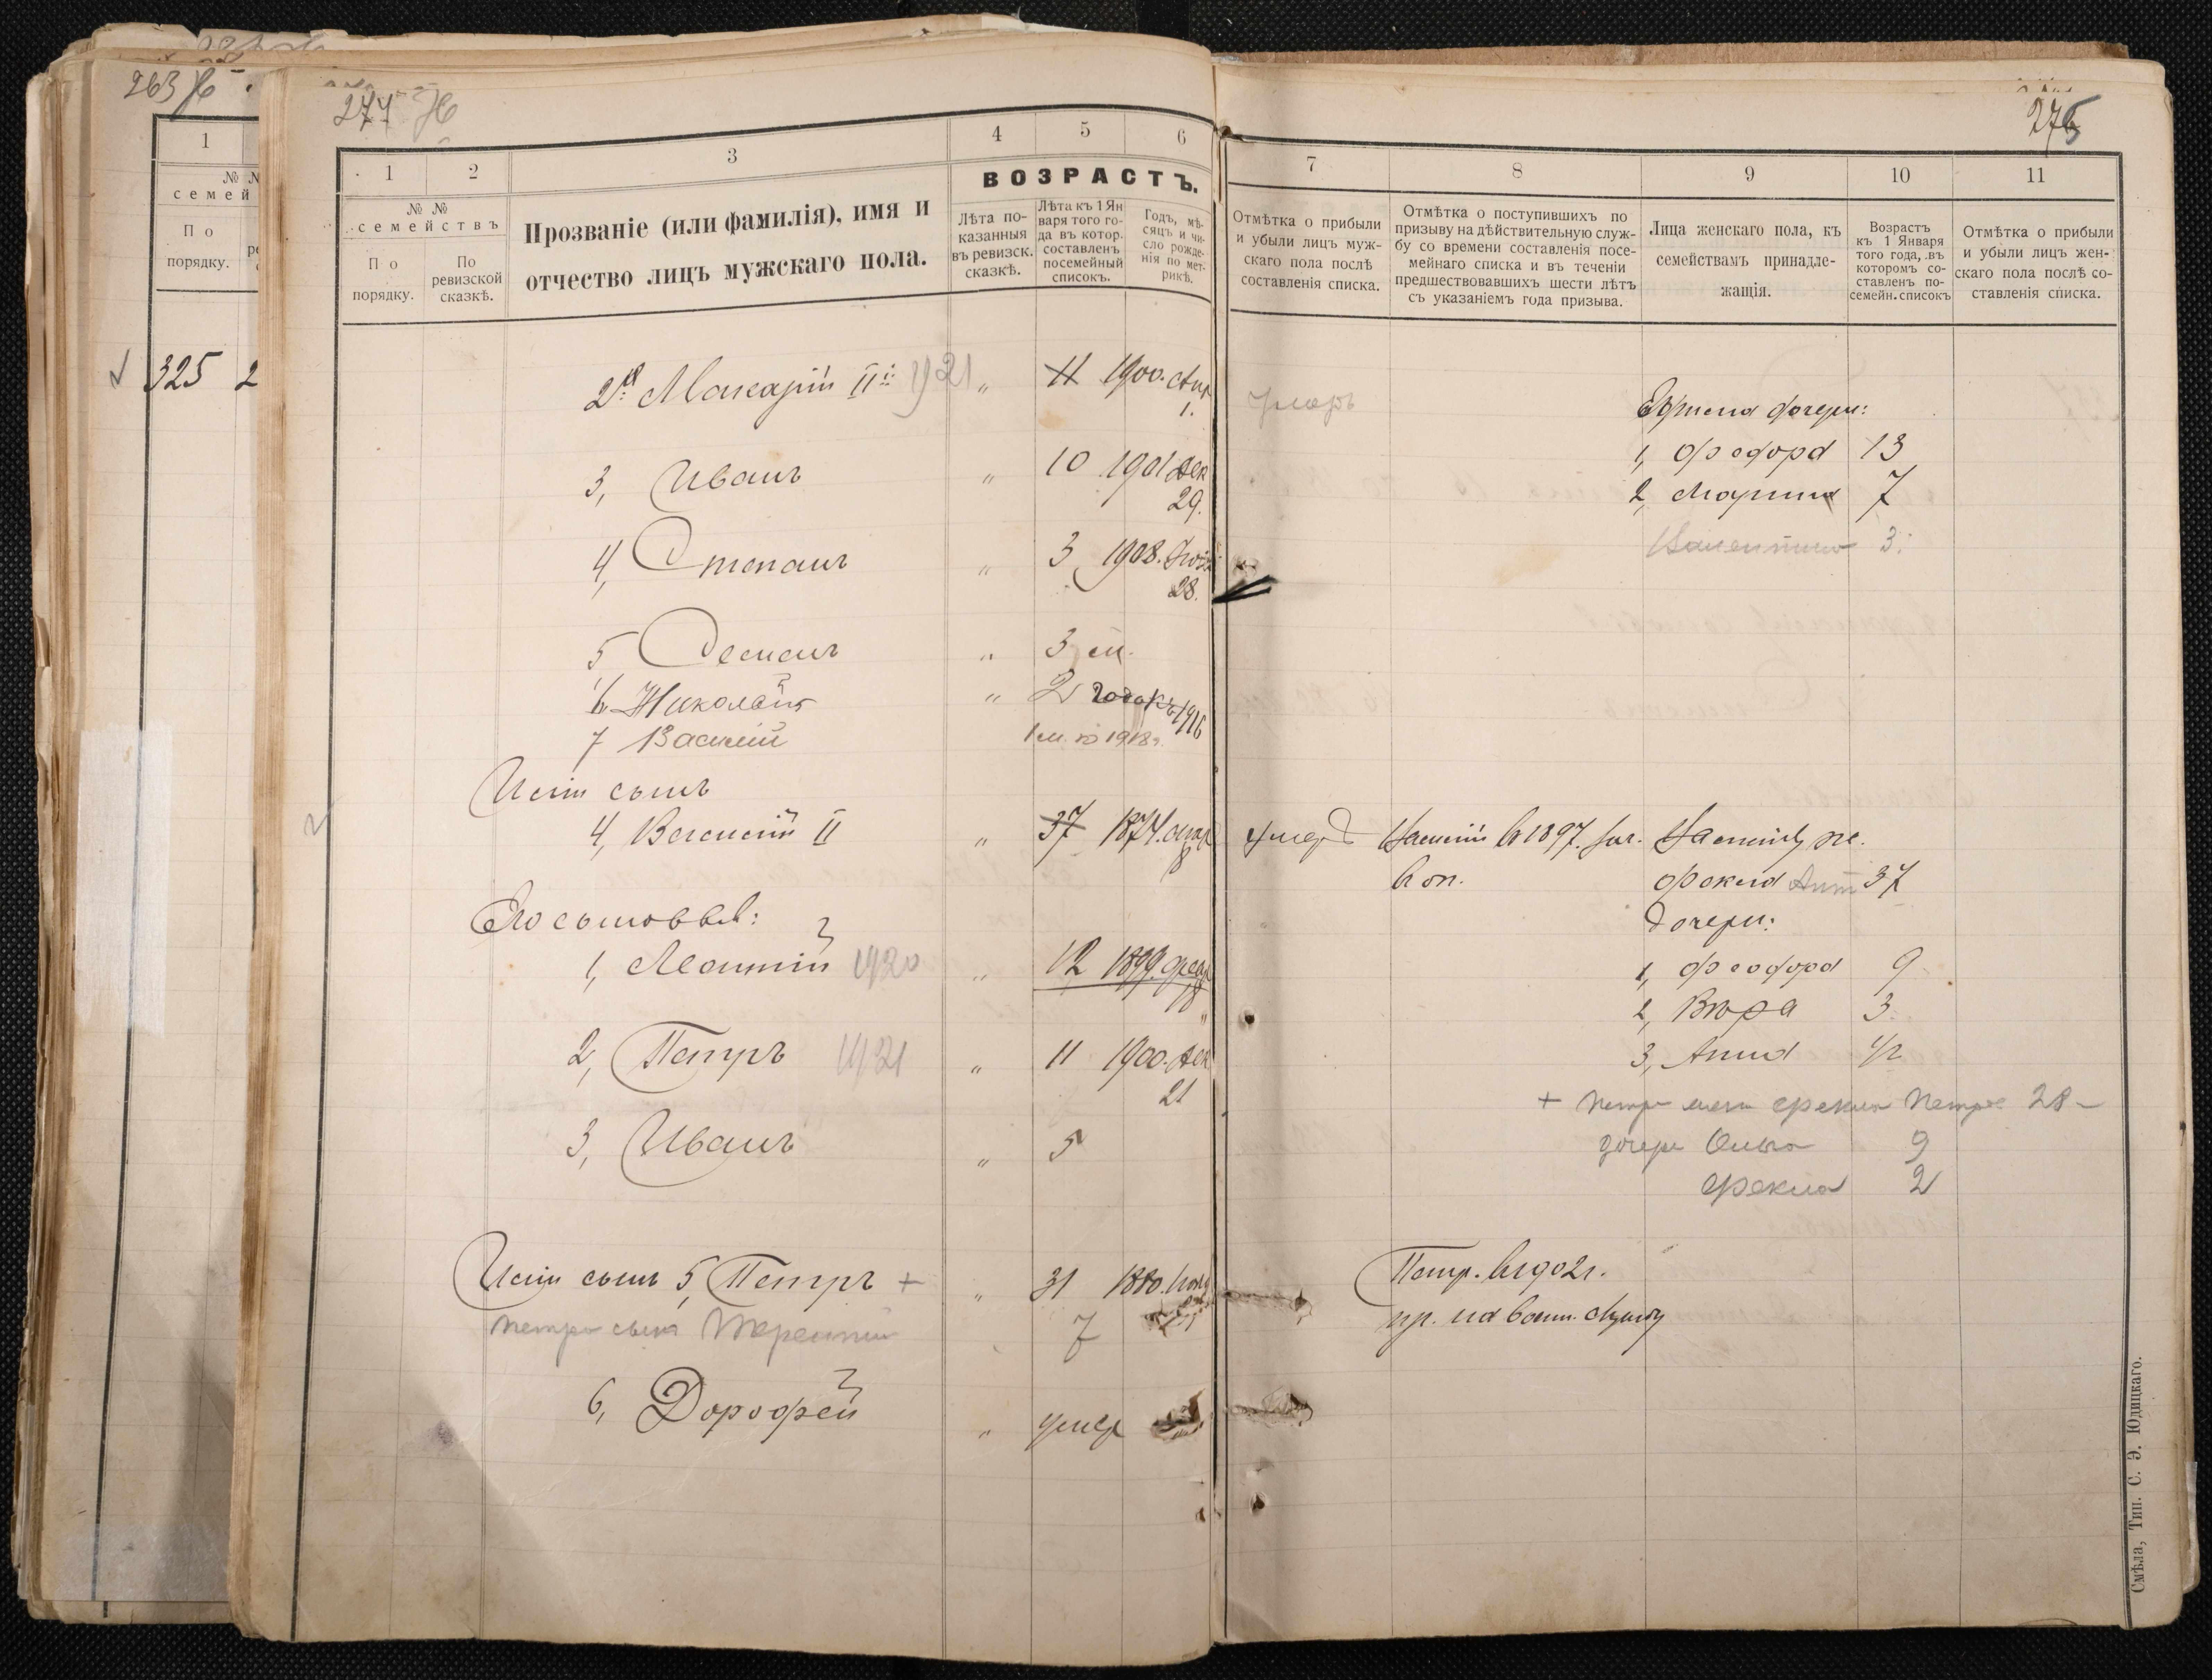 263
277
275
1
№ №
семей
По
порядку.
325 2
1 2 3 4 5 6
№ №
семействъ
По
порядку.
По
ревизской
сказкѣ.
Прозваніе (или фамилія), имя и
отчество лицъ мужскаго пола.
ВОЗРАСТЪ.
Лѣта по-
казанныя
въ ревизск.
сказкѣ.
Лѣта къ 1 Ян
варя того го-
да въ котор.
составленъ
посемейный
списокъ.
Годъ, мѣ-
сяцъ и чи-
сло рожде-
нія по мет-
рикѣ.
7 8 9 10 11
Отмѣтка о прибыли
и убыли лицъ муж-
скаго пола послѣ
составленія списка.
Отмѣтка о поступившихъ по
призыву на дѣйствительную служ-
бу со времени составленія посе-
мейнаго списка и въ теченіи
предшествовавшихъ шести лѣтъ
съ указаніемъ года призыва.
Лица женскаго пола, къ
семействамъ принадле-
жащія.
Возрастъ
къ 1 Января
того года, въ
которомъ со-
ставленъ по-
семейн. списокъ
Отмѣтка о прибыли
и убыли лицъ жен-
скаго пола послѣ со-
ставленія списка.
2й Макарій IIй 1921 " 11 1900. Апр
1.
умеръ
дочери:
3, Иванъ " 10 1901 Дек
29.
1, Феодора 13
2, Марина 7
4, Степанъ " 3 1908.
28.
Валентина 3
5 Семенъ " 3 м.
6 Николай " 2 года къ 1916
7 Василій 1 м. 1918 г.
сынъ
4, Василій II " 37 1874.
8
умеръ
Василій в 1897. зач.
в оп.
Василія же.
Фекла 37
дочери:
Его сыновья:
1, Леонтій 1920 " 12 1899. Февр
18
1, Феодора 9
2, Вѣра 3
2, Петръ 1921 " 11 1900. Дек
21
3, Анна 1/2
+ Петра жена Фекла Петро 28
3, Иванъ " 5
дочери Ольга 9
Фекла 2
сынъ 5, Петръ + " 31 1880.
Петр. в 1902 г.
пр. на воен. службу
Петра сынъ Терентій 7
6, Дорофей " умер
Смѣла, Тип. С. Э. Юдицкаго.